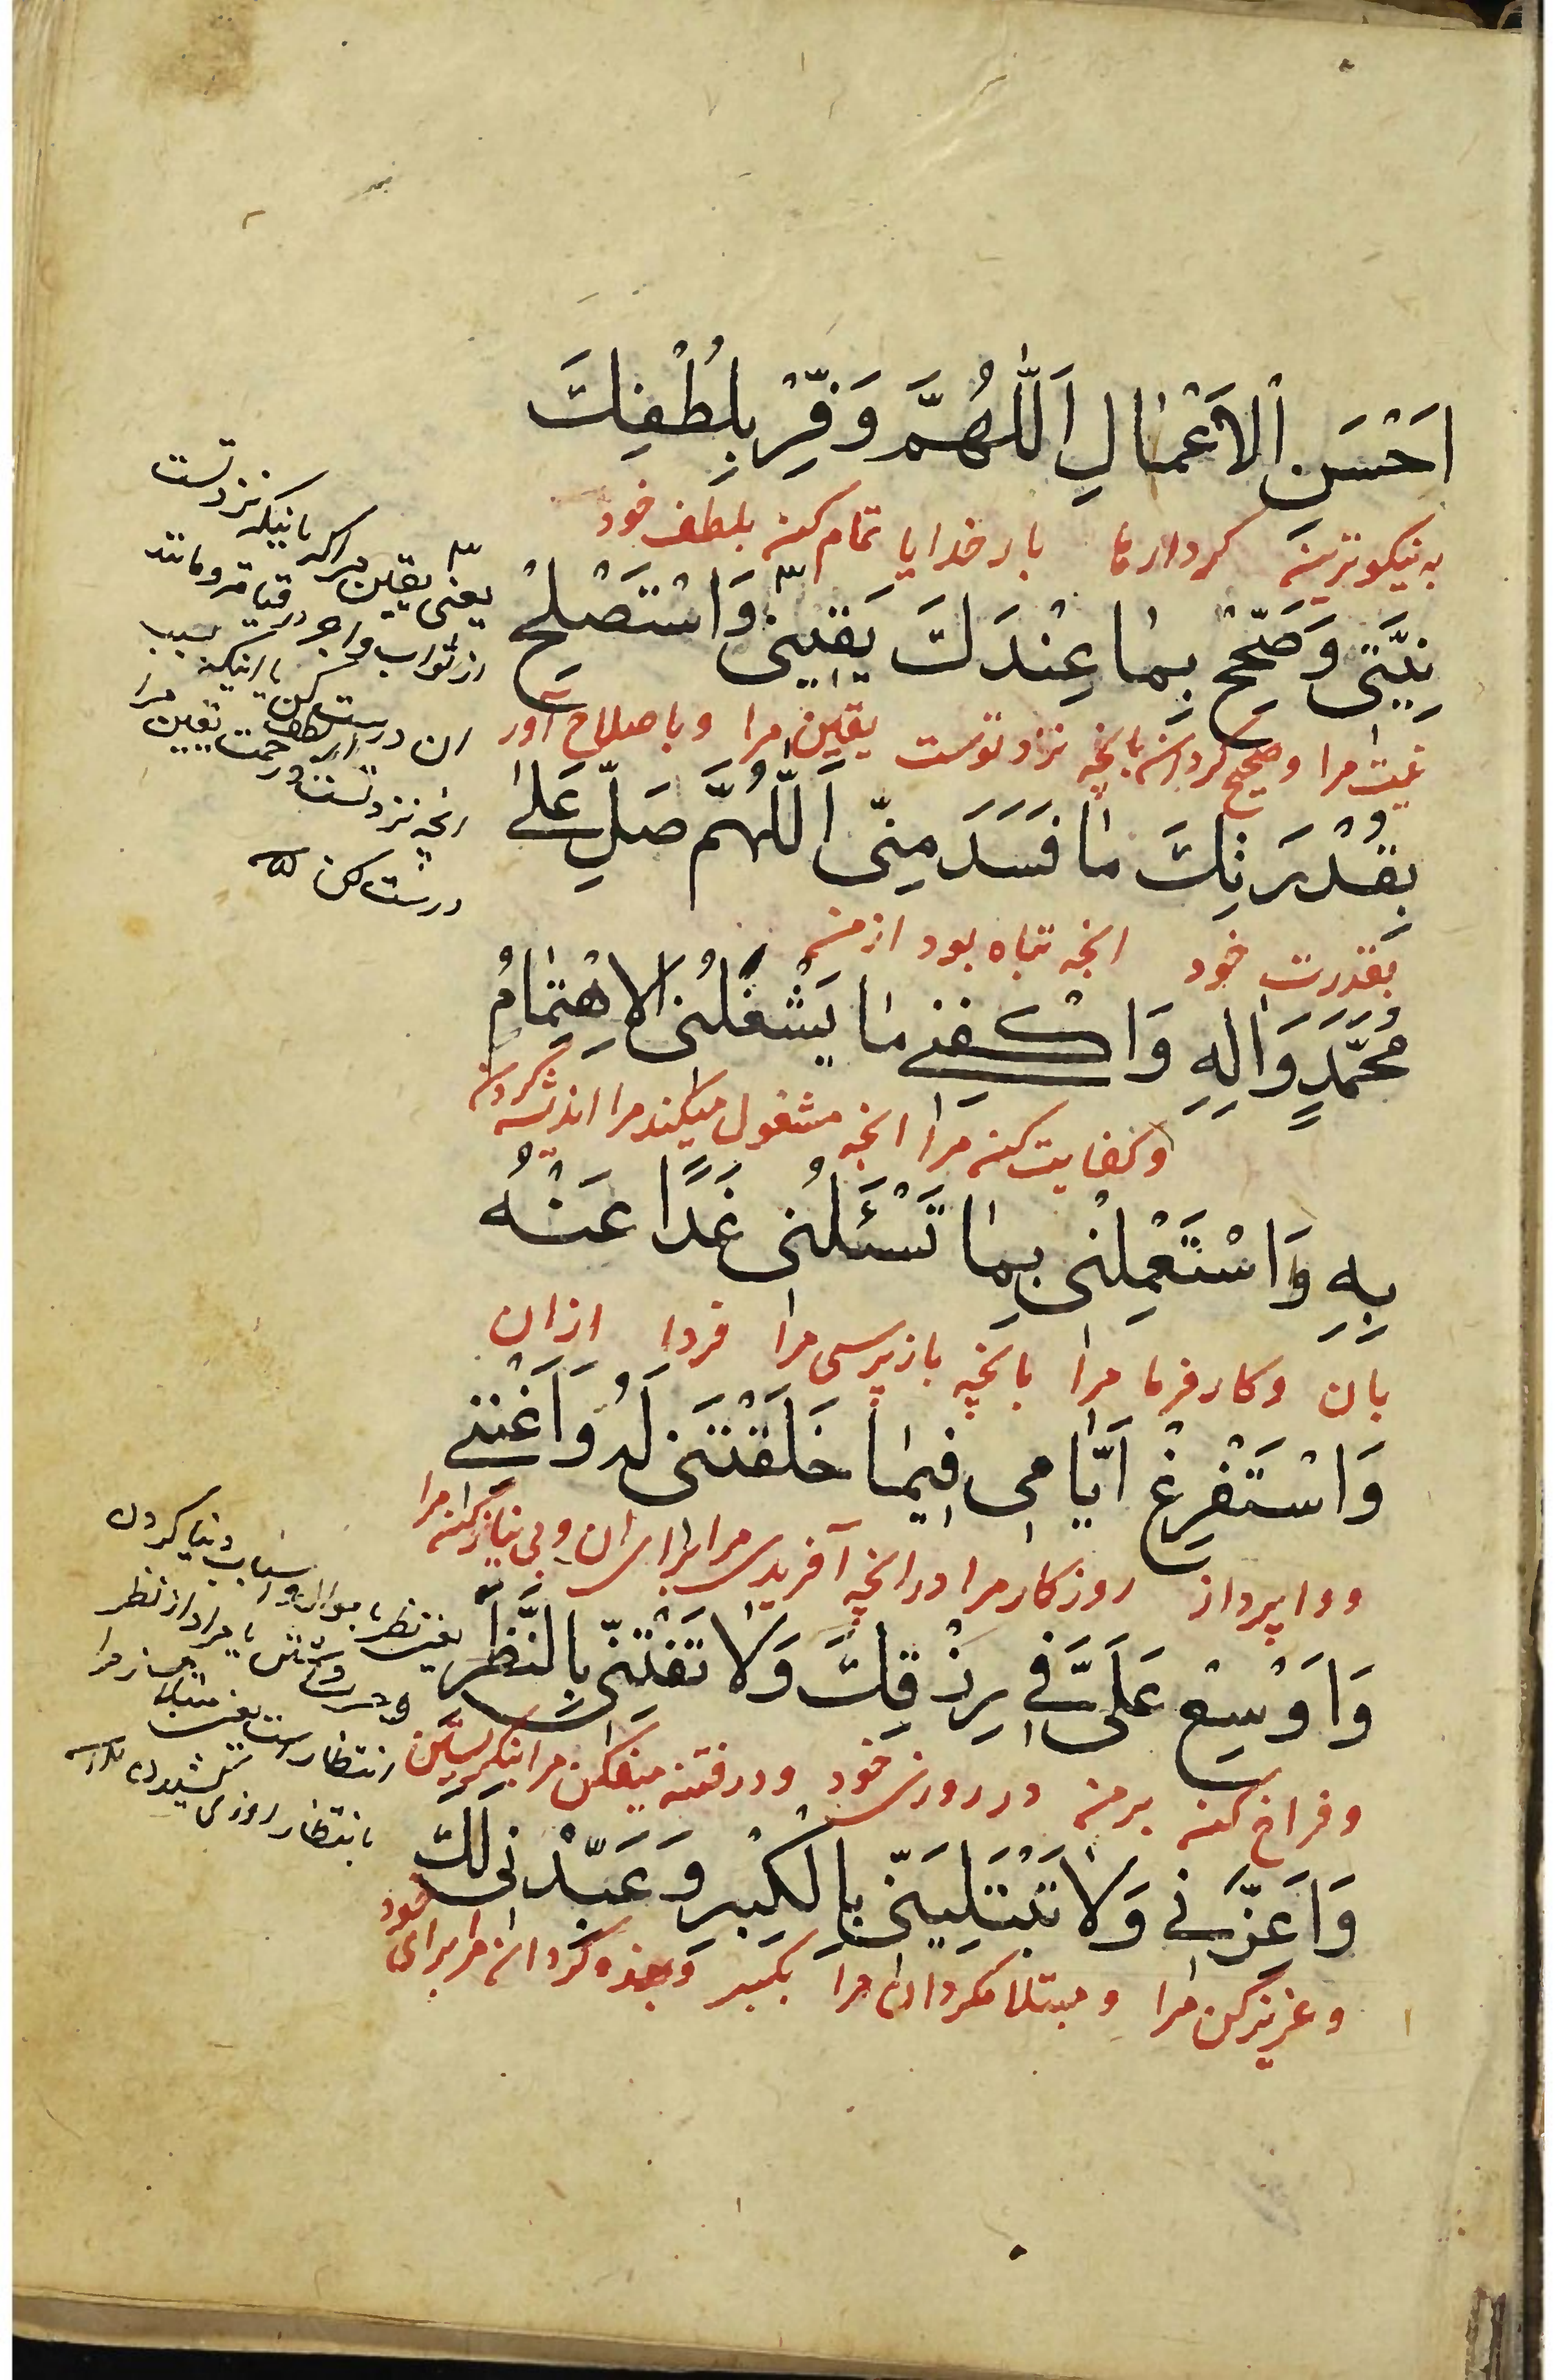 اَحْسَنِ الْاَعْمٰالِ اَللّٰهُمَّ وَفِّرْ بِلُطْفِكَ
به نیکوترین کردارها بار خدایا تمام کن بلطف خود
نِيَّتى وَصَحِّحْ بِمٰا عِنْدَكَ يَقينى وَاسْتَصْلِحْ
نیت مرا و صحیح گردان بانچه نزد توست یقین مرا و باصلاح آور
بِقُدْرَتِكَ مٰا فَسَدَ مِنّى اَللّٰهُمَّ صَلِّ عَلىٰ
بقدرت خود انچه تباه بود از من
مُحَمَّدٍ وَاٰلِهِ وَاكْفِنى مٰا يَشْغَلُنى الْاِهْتِمٰامُ
و کفایت کن مرا انچه مشغول میکند مرا اندیشه کردن
بِهِ وَاسْتَعْمِلْنى بِمٰا تَسْئَلُنى غَدًا عَنْهُ
بان و کار فرما مرا بانچه باز پرسی مرا فردا از ان
وَاسْتَفْرِغْ اَيّٰامى فيمٰا خَلَقْتَنى لَهُ وَاَغْنِنى
و وا پرداز روزکار مرا در انچه آفریدی مرا برای ان و بی نیاز کن مرا
وَاَوْسِعْ عَلَىَّ فى رِزْقِكَ وَلٰا تَفْتِنّى بِالنَّظَرِ
و فراخ کن بر من در روزی خود و در فتنه میفکن مرا بنکریستن
وَاَعِزَّنى وَلٰا تَبْتَلِيَنّى بِالْكِبْرِ وَعَبِّدْنى لَكَ
و عزیز کن مرا و مبتلا مکردان مرا بکبر و بنده گردان مرا برای خود
یعنی یقین مرا که بانیکه نزد تست
از ثواب و اجر در قیامت و مانند
ان درست کن یا اینکه بسبب
انچه نزد تست از لطف و رحمت یقین مرا
درست کن
یعنی نظر باموال و اسباب دنیا کردن
یا مراد از نظر
انتظار است یعنی مبتلا مساز مرا
بانتظار روزی کشیدن